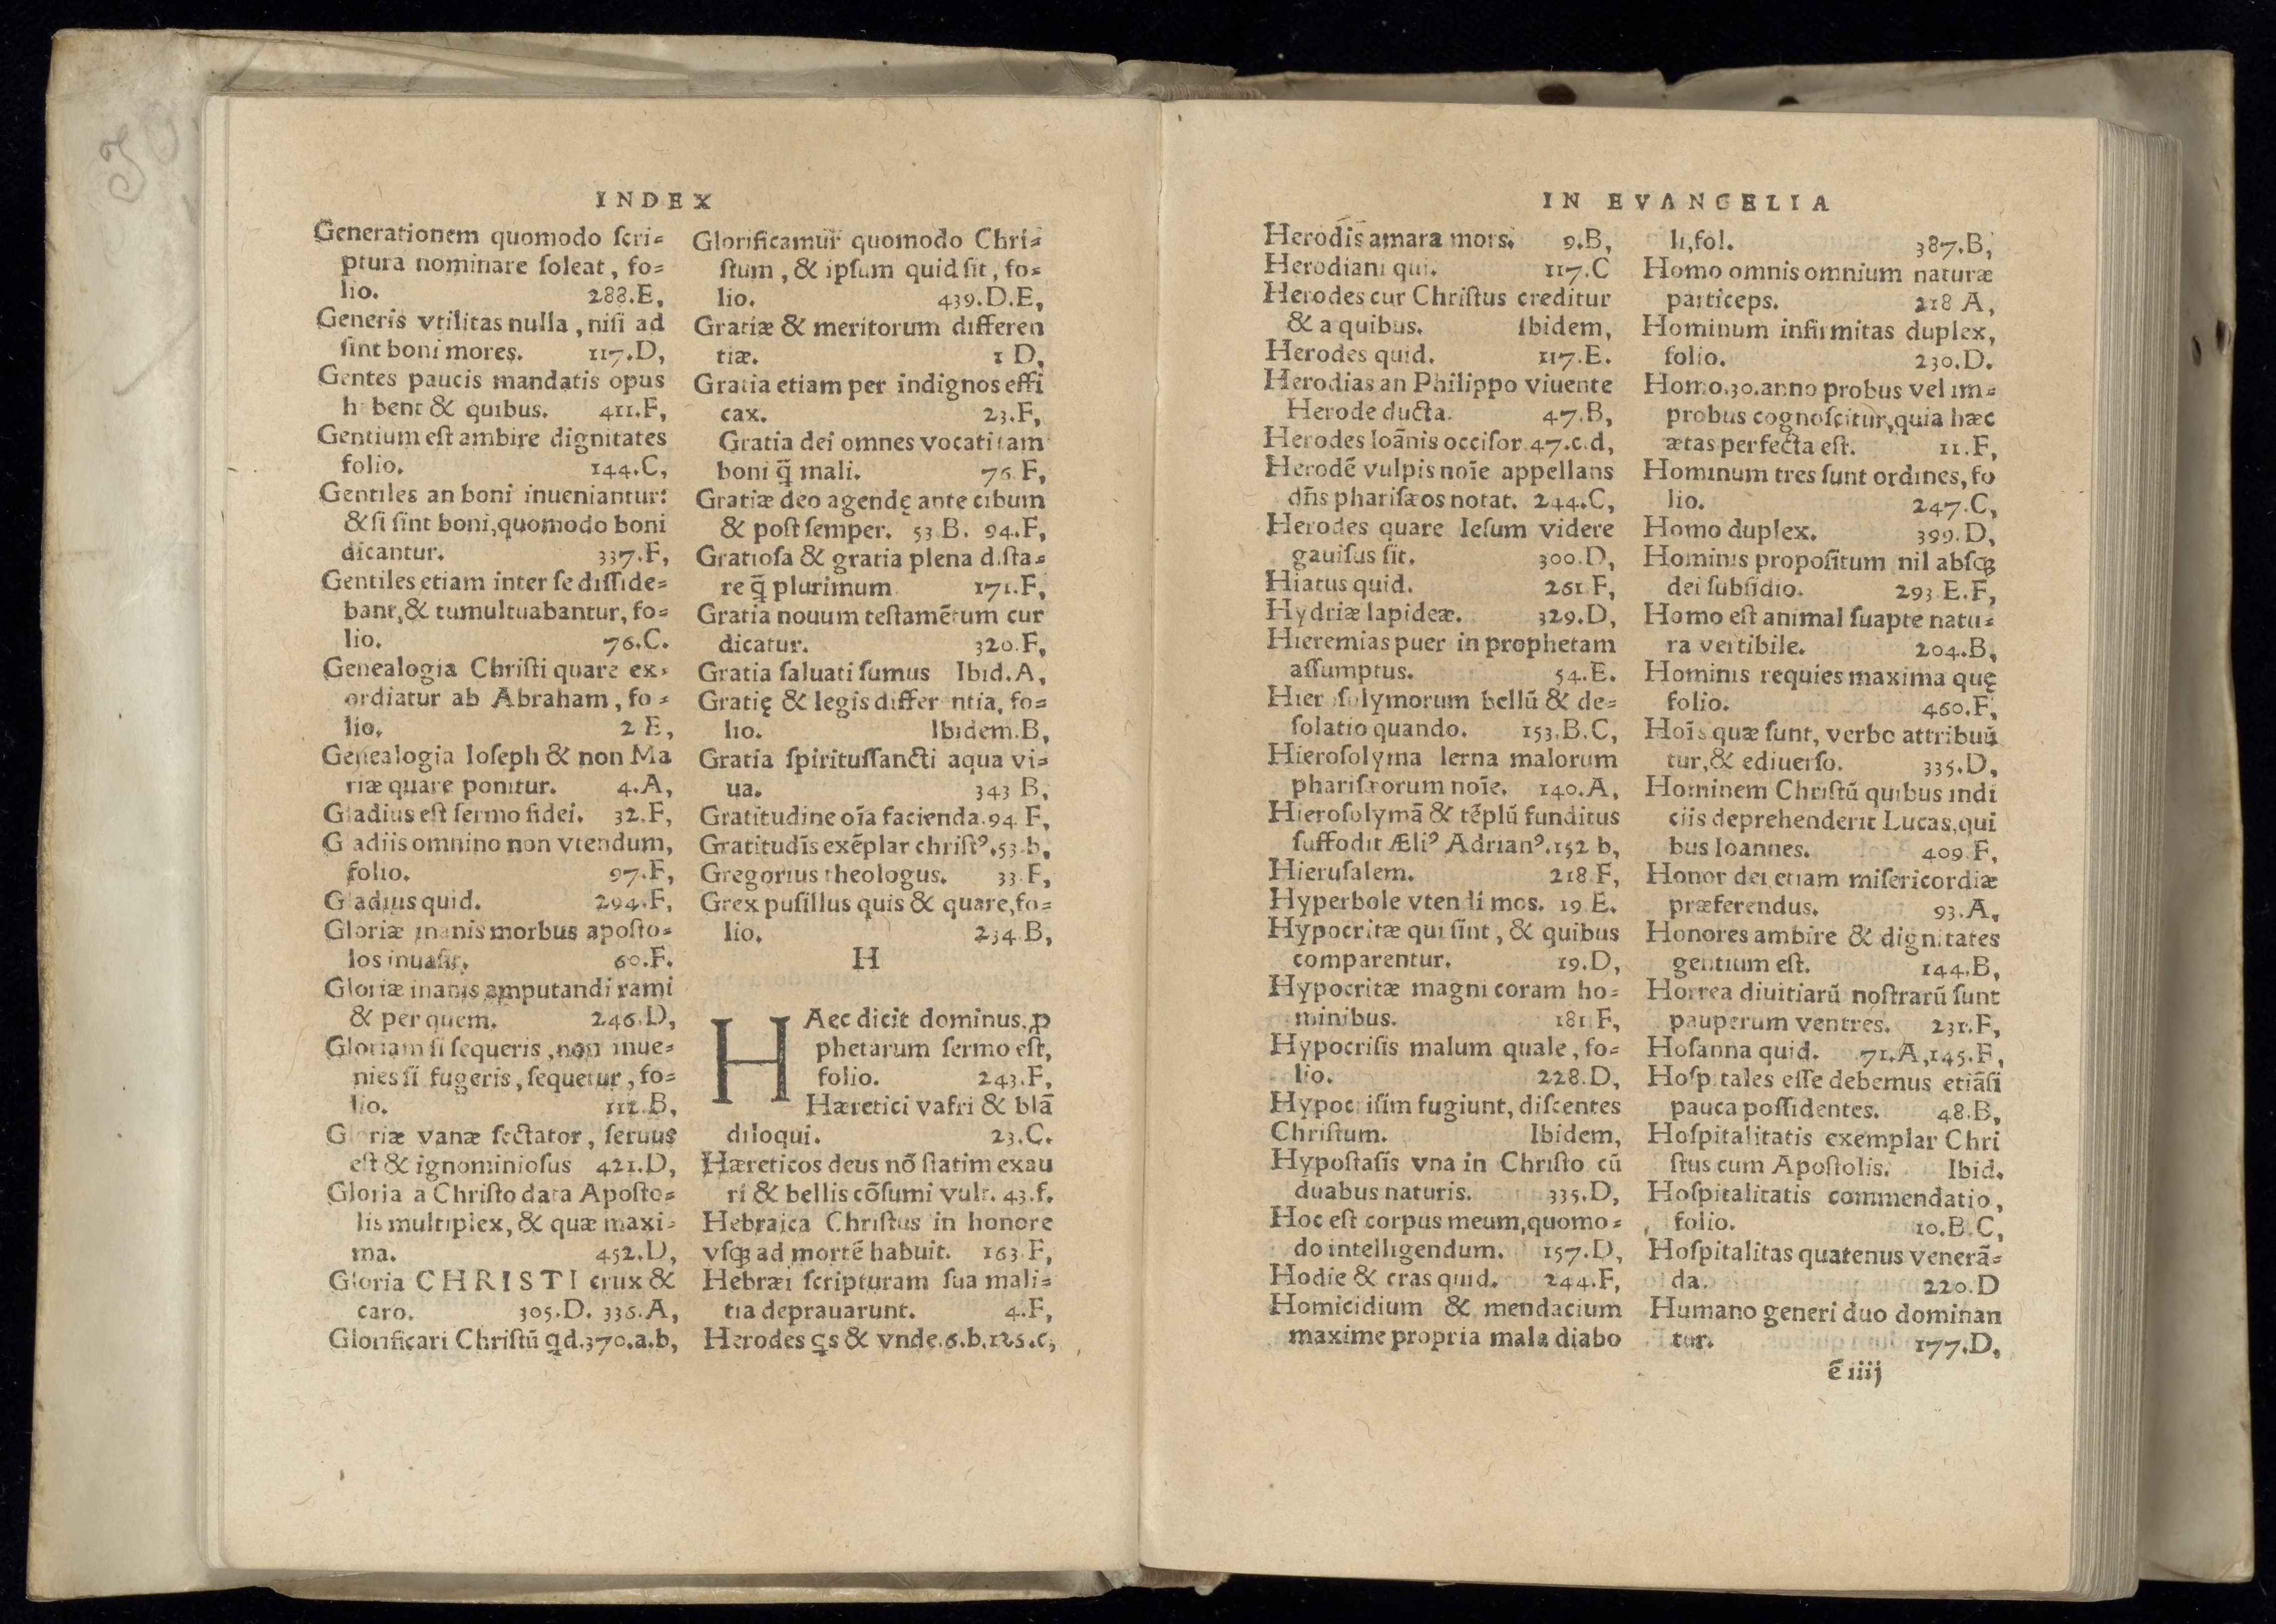 INDEX
Generationem quomodo ſcri⸗
ptura nominare ſoleat, fo⸗
lio. 288.E,
Generis vtilitas nulla, niſi ad
ſint boni mores. 117.D,
Gentes paucis mandatis opus
h bent & quibus. 411.F,
Gentium eſt ambire dignitates
folio. 144.C,
Gentiles an boni inueniantur:
& ſi ſint boni, quomodo boni
dicantur. 337.F,
Gentiles etiam inter ſe diſſide⸗
bant, & tumultuabantur, fo⸗
lio. 76.C.
Genealogia Chriſti quare ex⸗
ordiatur ab Abraham, fo⸗
lio, 2 E,
Genealogia Ioſeph & non Ma
riæ quare ponitur. 4.A,
Gladius eſt ſermo fidei. 32.F,
Gladiis omnino non vtendum,
folio. 97.F,
Gladius quid. 294.F,
Gloriæ inanis morbus apoſto⸗
los inuaſit. 60.F.
Gloriæ inanis amputandi rami
& per quem. 246.D,
Gloriam ſi ſequeris, non inue⸗
nies ſi fugeris, ſequetur, fo⸗
lio. 112.B,
Gloriæ vanæ ſectator, ſeruus
eſt & ignominioſus 421.D,
Gloria a Chriſto data Apoſto⸗
lis multiplex, & quæ maxi⸗
ma. 452.D,
Gloria CHRISTI crux &
caro. 305.D. 336.A,
Glorificari Chriſtū qd.370.a.b,
Glorificamur quomodo Chri⸗
ſtum, & ipſum quid ſit, fo⸗
lio. 439.D.E,
Gratiæ & meritorum differen
tiæ. 1 D,
Gratia etiam per indignos effi
cax. 23.F,
Gratia dei omnes vocati tam
boni q̄ mali. 76.F,
Gratiæ deo agendę ante cibum
& poſt ſemper. 53.B. 94.F,
Gratioſa & gratia plena diſta⸗
re q̄ plurimum 171.F,
Gratia nouum teſtamētum cur
dicatur. 320.F,
Gratia ſaluati ſumus Ibid.A,
Gratię & legis differ ntia, fo⸗
lio. Ibidem.B,
Gratia ſpirituſſancti aqua vi⸗
ua. 343 B,
Gratitudine oīa facienda.94 F,
Gratitudīs exēplar chriſtꝰ.53.b,
Gregorius theologus. 33.F,
Grex puſillus quis & quare, fo⸗
lio. 234.B,
H
HAec dicit dominus, ꝓ
phetarum ſermo eſt,
folio. 243.F,
Hæretici vafri & blā
diloqui. 23.C.
Hæreticos deus nō ſtatim exau
ri & bellis cōſumi vult. 43.f.
Hebraica Chriſtus in honore
vſqꝫ ad mortē habuit. 163.F,
Hebræi ſcripturam ſua mali⸗
tia deprauarunt. 4.F,
Herodes qs & vnde.6.b.126.c,
IN EVANGELIA
Herodis amara mors. 9.B,
Herodiani qui. 117.C
Herodes cur Chriſtus creditur
& a quibus. Ibidem,
Herodes quid. 117.E.
Herodias an Philippo viuente
Herode ducta. 47.B,
Herodes Ioānis occiſor.47.c.d,
Herodē vulpis noīe appellans
dn̄s phariſæos notat. 244.C,
Herodes quare Ieſum videre
gauiſus ſit. 300.D,
Hiatus quid. 261 F,
Hydriæ lapideæ. 329.D,
Hieremias puer in prophetam
aſſumptus. 54.E.
Hieroſolymorum bellū & de⸗
ſolatio quando. 153.B.C,
Hieroſolyma lerna malorum
phariſæorum noīe. 140.A,
Hieroſolymā & tēplū funditus
ſuffodit Æliꝰ Adrianꝰ.152 b,
Hieruſalem. 218 F,
Hyperbole vtendi mos. 19 E.
Hypocritæ qui ſint, & quibus
comparentur. 19.D,
Hypocritæ magni coram ho⸗
minibus. 181 F,
Hypocriſis malum quale, fo⸗
lio. 228.D,
Hypocriſim fugiunt, diſcentes
Chriſtum. Ibidem,
Hypoſtaſis vna in Chriſto cū
duabus naturis. 335.D,
Hoc eſt corpus meum, quomo⸗
do intelligendum. 157.D,
Hodie & cras quid. 244.F,
Homicidium & mendacium
maxime propria mala diabo
li, fol. 387.B,
Homo omnis omnium naturæ
particeps. 218 A,
Hominum infirmitas duplex,
folio. 230.D.
Homo.30.anno probus vel im⸗
probus cognoſcitur, quia hæc
ætas perfecta eſt. 11.F,
Hominum tres ſunt ordines, fo
lio. 247.C,
Homo duplex. 399.D,
Hominis propoſitum nil abſqꝫ
dei ſubſidio. 293 E.F,
Homo eſt animal ſuapte natu⸗
ra vertibile. 204.B,
Hominis requies maxima quę
folio. 460.F,
Hoīs quæ ſunt, verbo attribuū
tur, & ediuerſo. 335.D,
Hominem Chriſtū quibus indi
ciis deprehenderit Lucas, qui
bus Ioannes. 409 F,
Honor dei etiam miſericordiæ
præferendus. 93.A,
Honores ambire & dignitates
gentium eſt. 144.B,
Horrea diuitiarū noſtrarū ſunt
pauperum ventres. 231.F,
Hoſanna quid. 71.A,145.F,
Hoſpitales eſſe debemus etiāſi
pauca poſſidentes. 48.B,
Hoſpitalitatis exemplar Chri
ſtus cum Apoſtolis. Ibid.
Hoſpitalitatis commendatio,
folio. 10.B.C,
Hoſpitalitas quatenus venerā⸗
da. 220.D
Humano generi duo dominan
tur. 177.D,
ē iiij